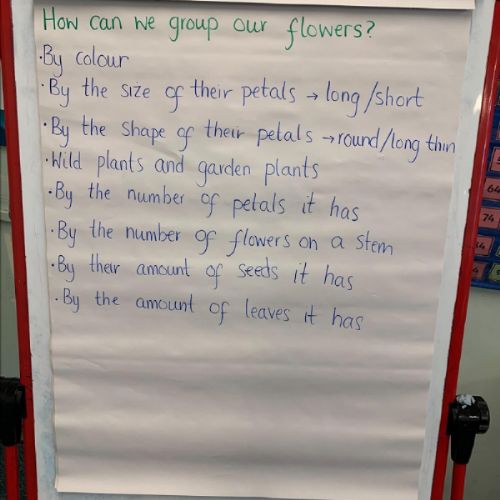 How can we group our flowers?
·By colour
·By the size of their petals → long/short
·By the shape of their petals → round/long thin
·Wild plants and garden plants
·By the number of petals it has
·By the number of flowers on a stem
·By their amount of seeds it has
·By the amount of leaves it has
64
74